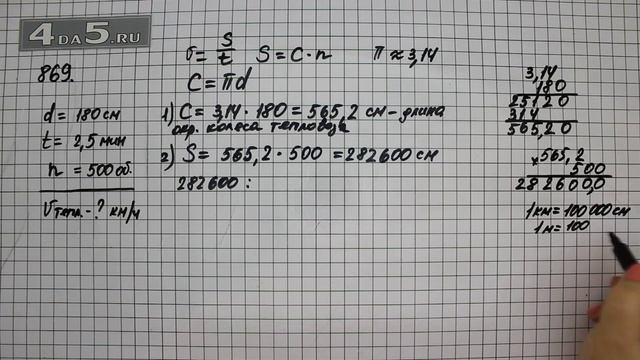 4DA5.RU
869.
v = S/t   S = C · n   π ≈ 3,14
C = πd
d = 180 см
t = 2,5 мин
n = 500 об.
Vтепл. - ? км/ч
1) C = 3,14 · 180 = 565,2 см - длина
окр. колеса тепловоза
2) S = 565,2 · 500 = 282600 см
282600 :
3,14
180
25120
314
565,20
×565,2
500
282600,0
1км = 100 000 см
1м = 100